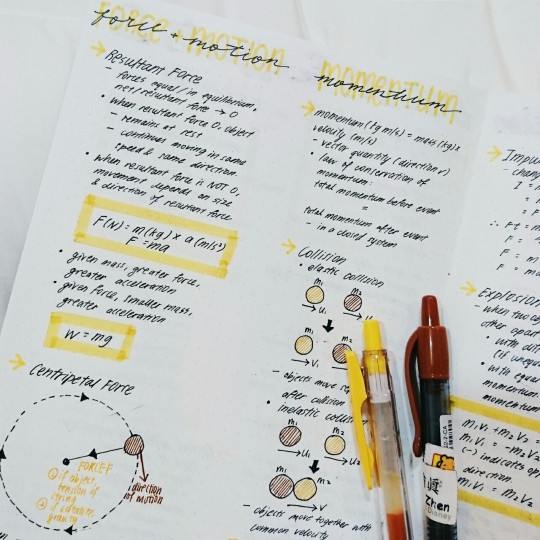 force + motion
FORCE + MOTION
→ Resultant Force
- forces equal/in equilibrium,
net/resultant force → 0
• when resultant force 0, object
- remains at rest
- continues moving in same
speed & same direction
• when resultant force is NOT 0,
movement depends on size
& direction of resultant force
F(N) = m(kg) x a(m/s²)
F = ma
• given mass, greater force,
greater acceleration
• given force, smaller mass,
greater acceleration
W = mg
→ Centripetal Force
FORCE F
① if object,
tension of
string
gravity
direction
of motion
momentum
MOMENTUM
→ momentum (kg m/s) = mass (kg) x
velocity (m/s)
- vector quantity (direction v)
• law of conservation of
momentum:
total momentum before event
=
total momentum after event
- in a closed system
→ Collision
• elastic collision
m₁ m₂
→ U₁
m₁ m₂
→ V₁
- objects move
after collision
• inelastic
m₁ m₂
→ U₁ → U₂
m₁ m₂
→ V
- objects move together with
common velocity
→
- chan
I =
=
=
∴ Ft = m
F =
F = m
F = ma
→ Explosion
- when two ob
other apart
• with
(if unequa
• with equal
momentum
momentum
m₁V₁ + m₂V₂ =
m₁V₁ = -m₂V₂
(-) indicates opp
direction
m₁V₁ = m₂V₂
Zhen